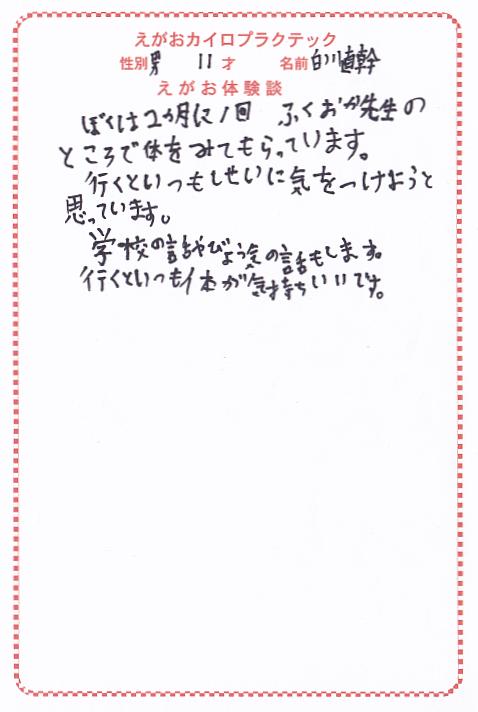 えがおカイロプラクテック
性別 男 11 才 名前 白川直幹
えがお体験談
ぼくは2か月に1回 ふくおか先生の
ところで体をみてもらっています。
行くといつもしせいに気をつけようと
思っています。
学校の話やびょう気の話もします。
行くといつも体が気持ちいいです。